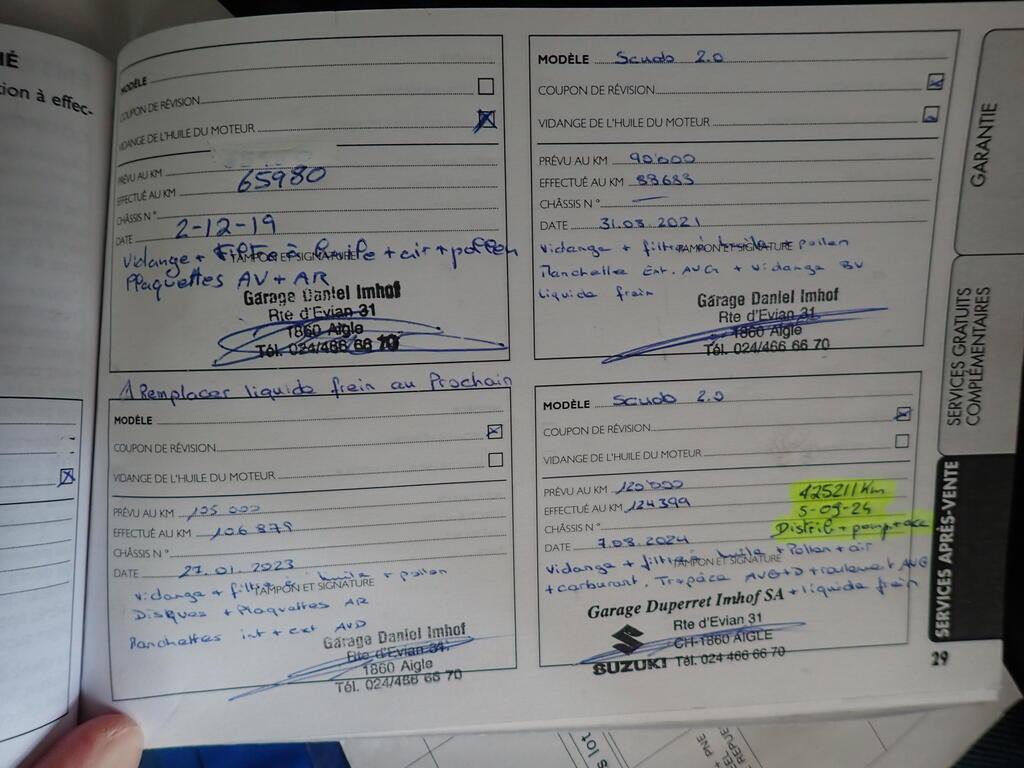 É
ion à effec-
MODÈLE
COUPON DE RÉVISION
VIDANGE DE L'HUILE DU MOTEUR
PRÉVU AU KM
EFFECTUÉ AU KM 65980
CHÂSSIS N°
DATE 2-12-19
TAMPON ET SIGNATURE
Vidange + filtre à huile + air + pollen
Plaquettes AV + AR
Garage Daniel Imhof
Rte d'Evian 31
1860 Aigle
Tél. 024/466 66 70
MODÈLE Scudo 2.0
COUPON DE RÉVISION
VIDANGE DE L'HUILE DU MOTEUR
PRÉVU AU KM 90'000
EFFECTUÉ AU KM 88683
CHÂSSIS N°
DATE 31.03.2021
TAMPON ET SIGNATURE
Vidange + filtre à huile + pollen
Manchette Ext. AVG + Vidange BV
liquide frein
Garage Daniel Imhof
Rte d'Evian 31
1860 Aigle
Tél. 024/466 66 70
Remplacer liquide frein au Prochain
MODÈLE
COUPON DE RÉVISION
VIDANGE DE L'HUILE DU MOTEUR
PRÉVU AU KM 105 000
EFFECTUÉ AU KM 106879
CHÂSSIS N°
DATE 27.01.2023
TAMPON ET SIGNATURE
Vidange + filtre à huile + pollen
Disques + Plaquettes AR
Manchettes int + ext AVD
Garage Daniel Imhof
Rte d'Evian 31
1860 Aigle
Tél. 024/466 66 70
MODÈLE Scudo 2.0
COUPON DE RÉVISION
VIDANGE DE L'HUILE DU MOTEUR
PRÉVU AU KM 120'000
EFFECTUÉ AU KM 124399
CHÂSSIS N°
DATE 7.08.2024
125211 Km
5-09-24
Distrib + pomp + acc
TAMPON ET SIGNATURE
Vidange + filtre à huile + Pollen + air
+ carburant. Trapèze AVG+D + roulement AVG
+ liquide frein
Garage Duperret Imhof SA
Rte d'Evian 31
CH-1860 AIGLE
SUZUKI Tél. 024 466 66 70
GARANTIE
SERVICES GRATUITS
COMPLÉMENTAIRES
SERVICES APRÈS-VENTE
29
s lot
PNE